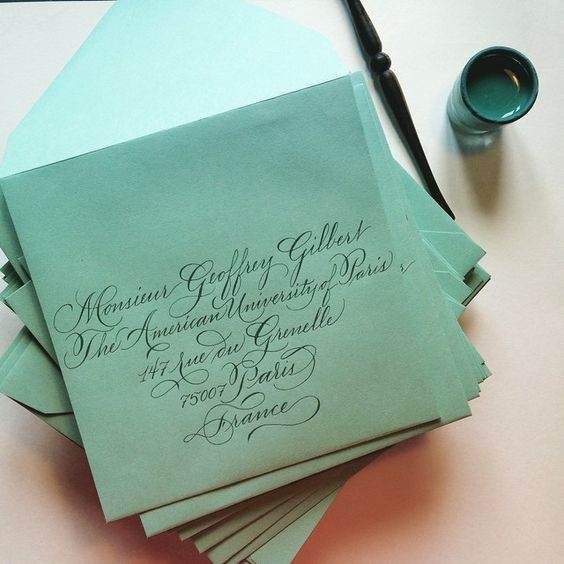 Monsieur Geoffrey Gilbert
The American University of Paris
147 rue du Grenelle
75007 Paris
France